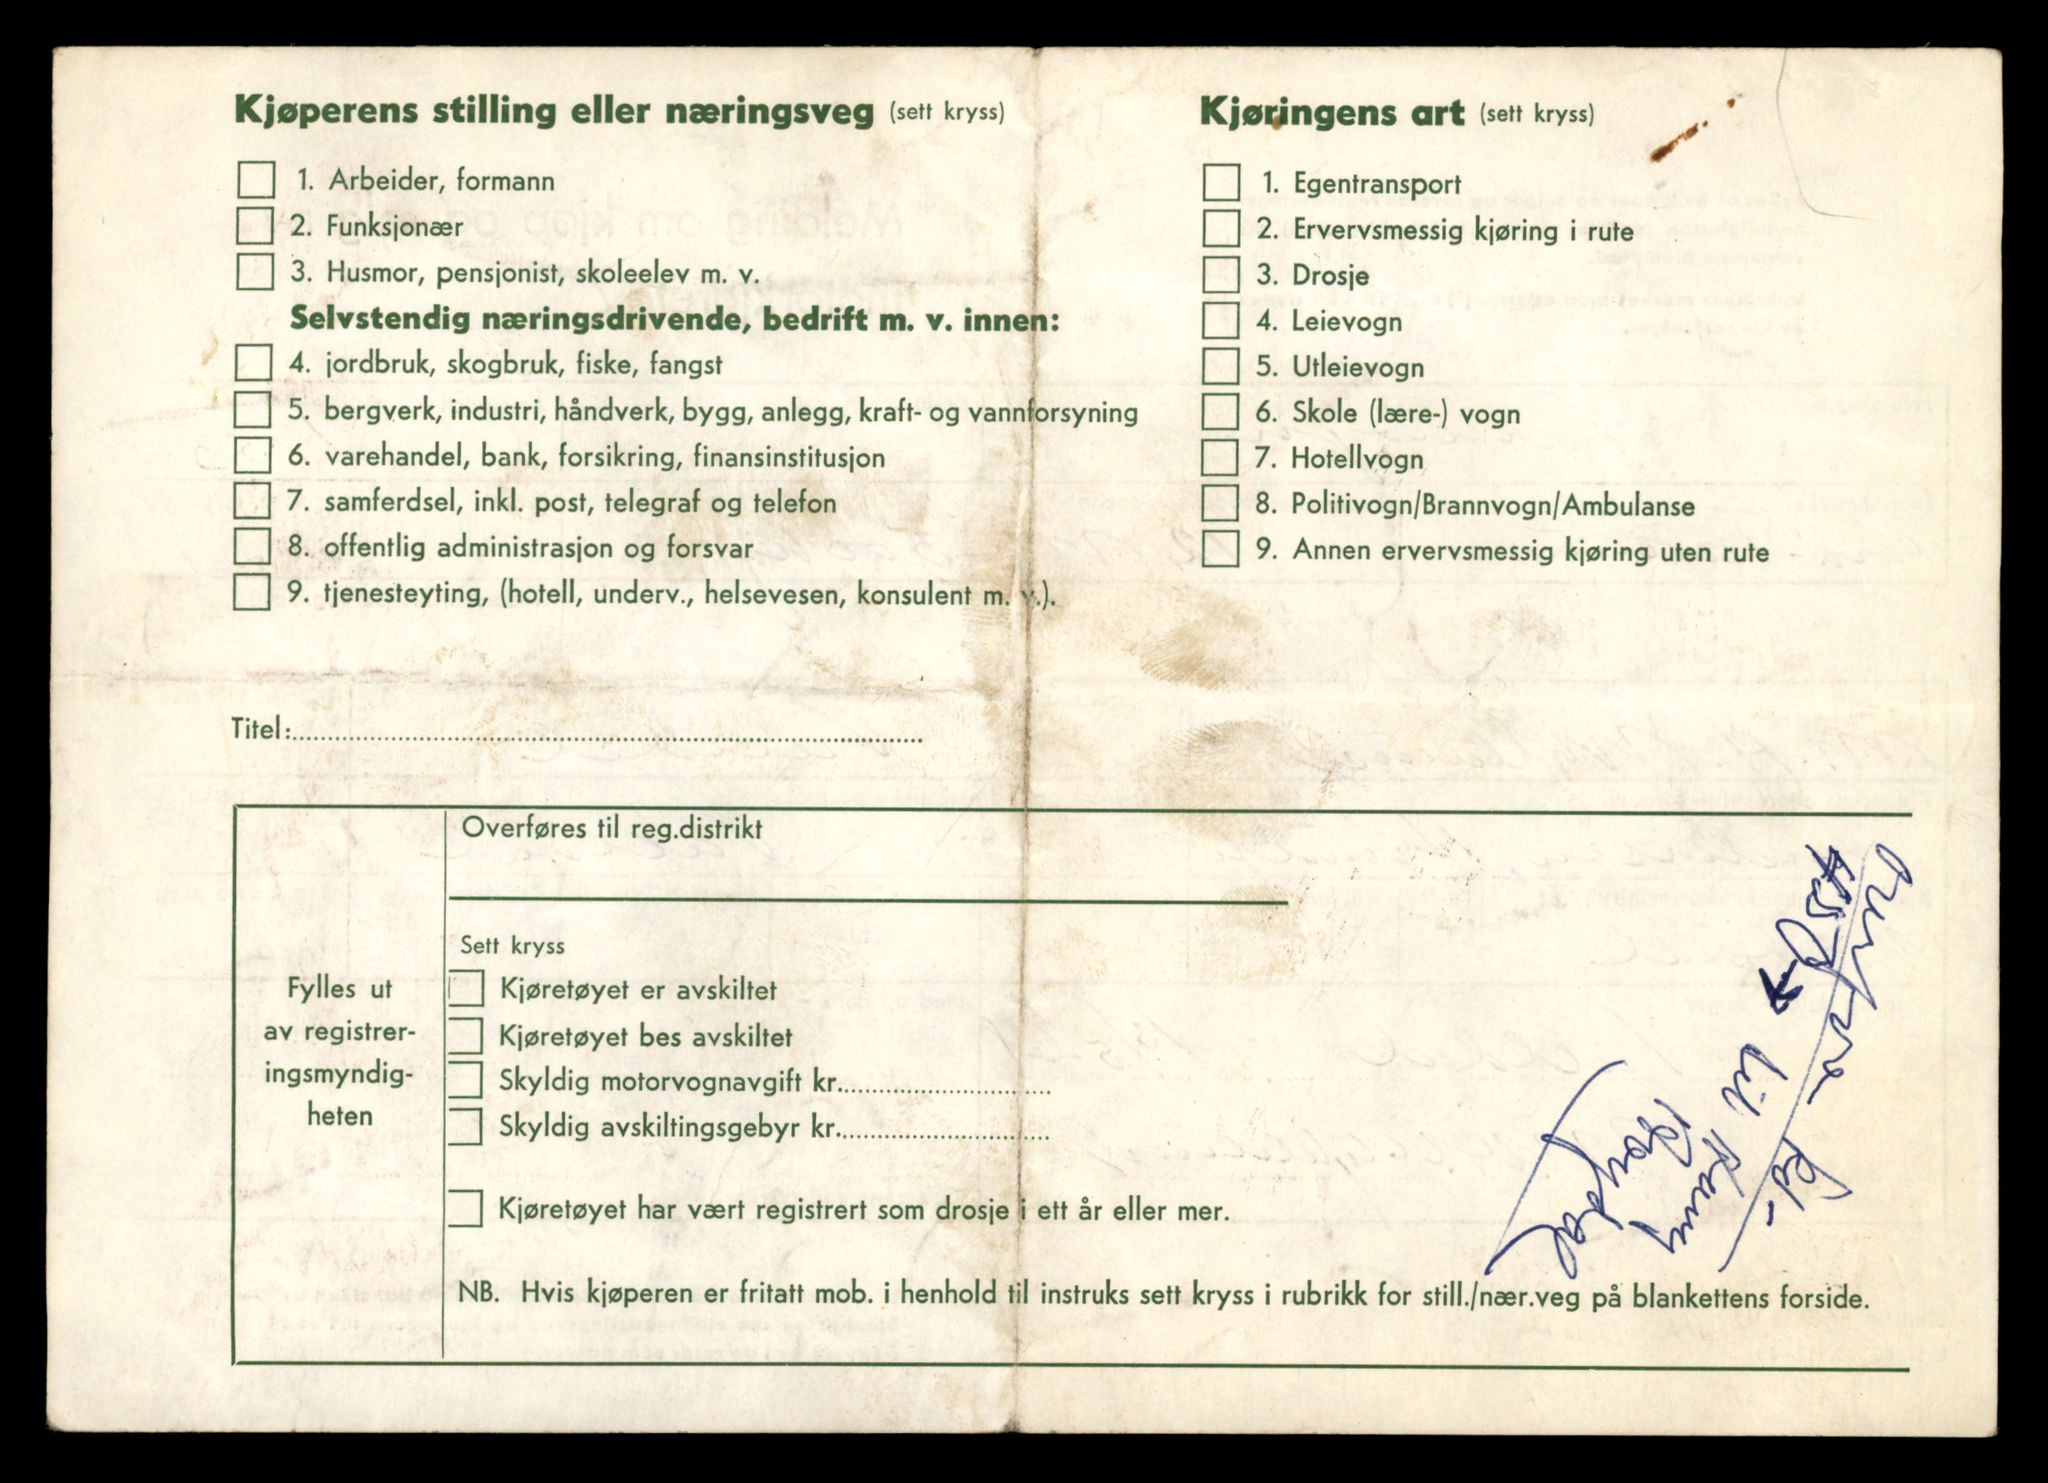 Kjøperens stilling eller næringsveg (sett kryss)
1. Arbeider, formann
2. Funksjonær
3. Husmor, pensjonist, skoleelev m. v.
Selvstendig næringsdrivende, bedrift m. v. innen:
4. jordbruk, skogbruk, fiske, fangst
5. bergverk, industri, håndverk, bygg, anlegg, kraft- og vannforsyning
6. varehandel, bank, forsikring, finansinstitusjon
7. samferdsel, inkl. post, telegraf og telefon
8. offentlig administrasjon og forsvar
9. tjenesteyting, (hotell, underv., helsevesen, konsulent m. v.).
Titel:
Kjøringens art (sett kryss)
1. Egentransport
2. Ervervsmessig kjøring i rute
3. Drosje
4. Leievogn
5. Utleievogn
6. Skole (lære-) vogn
7. Hotellvogn
8. Politivogn/Brannvogn/Ambulanse
9. Annen ervervsmessig kjøring uten rute
Fylles ut
av registrer-
ingsmyndig-
heten
Overføres til reg.distrikt
Sett kryss
Kjøretøyet er avskiltet
Kjøretøyet bes avskiltet
Skyldig motorvognavgift kr.
Skyldig avskiltingsgebyr kr.
Kjøretøyet har vært registrert som drosje i ett år eller mer.
NB. Hvis kjøperen er fritatt mob. i henhold til instruks sett kryss i rubrikk for still./nær.veg på blankettens forside.
til